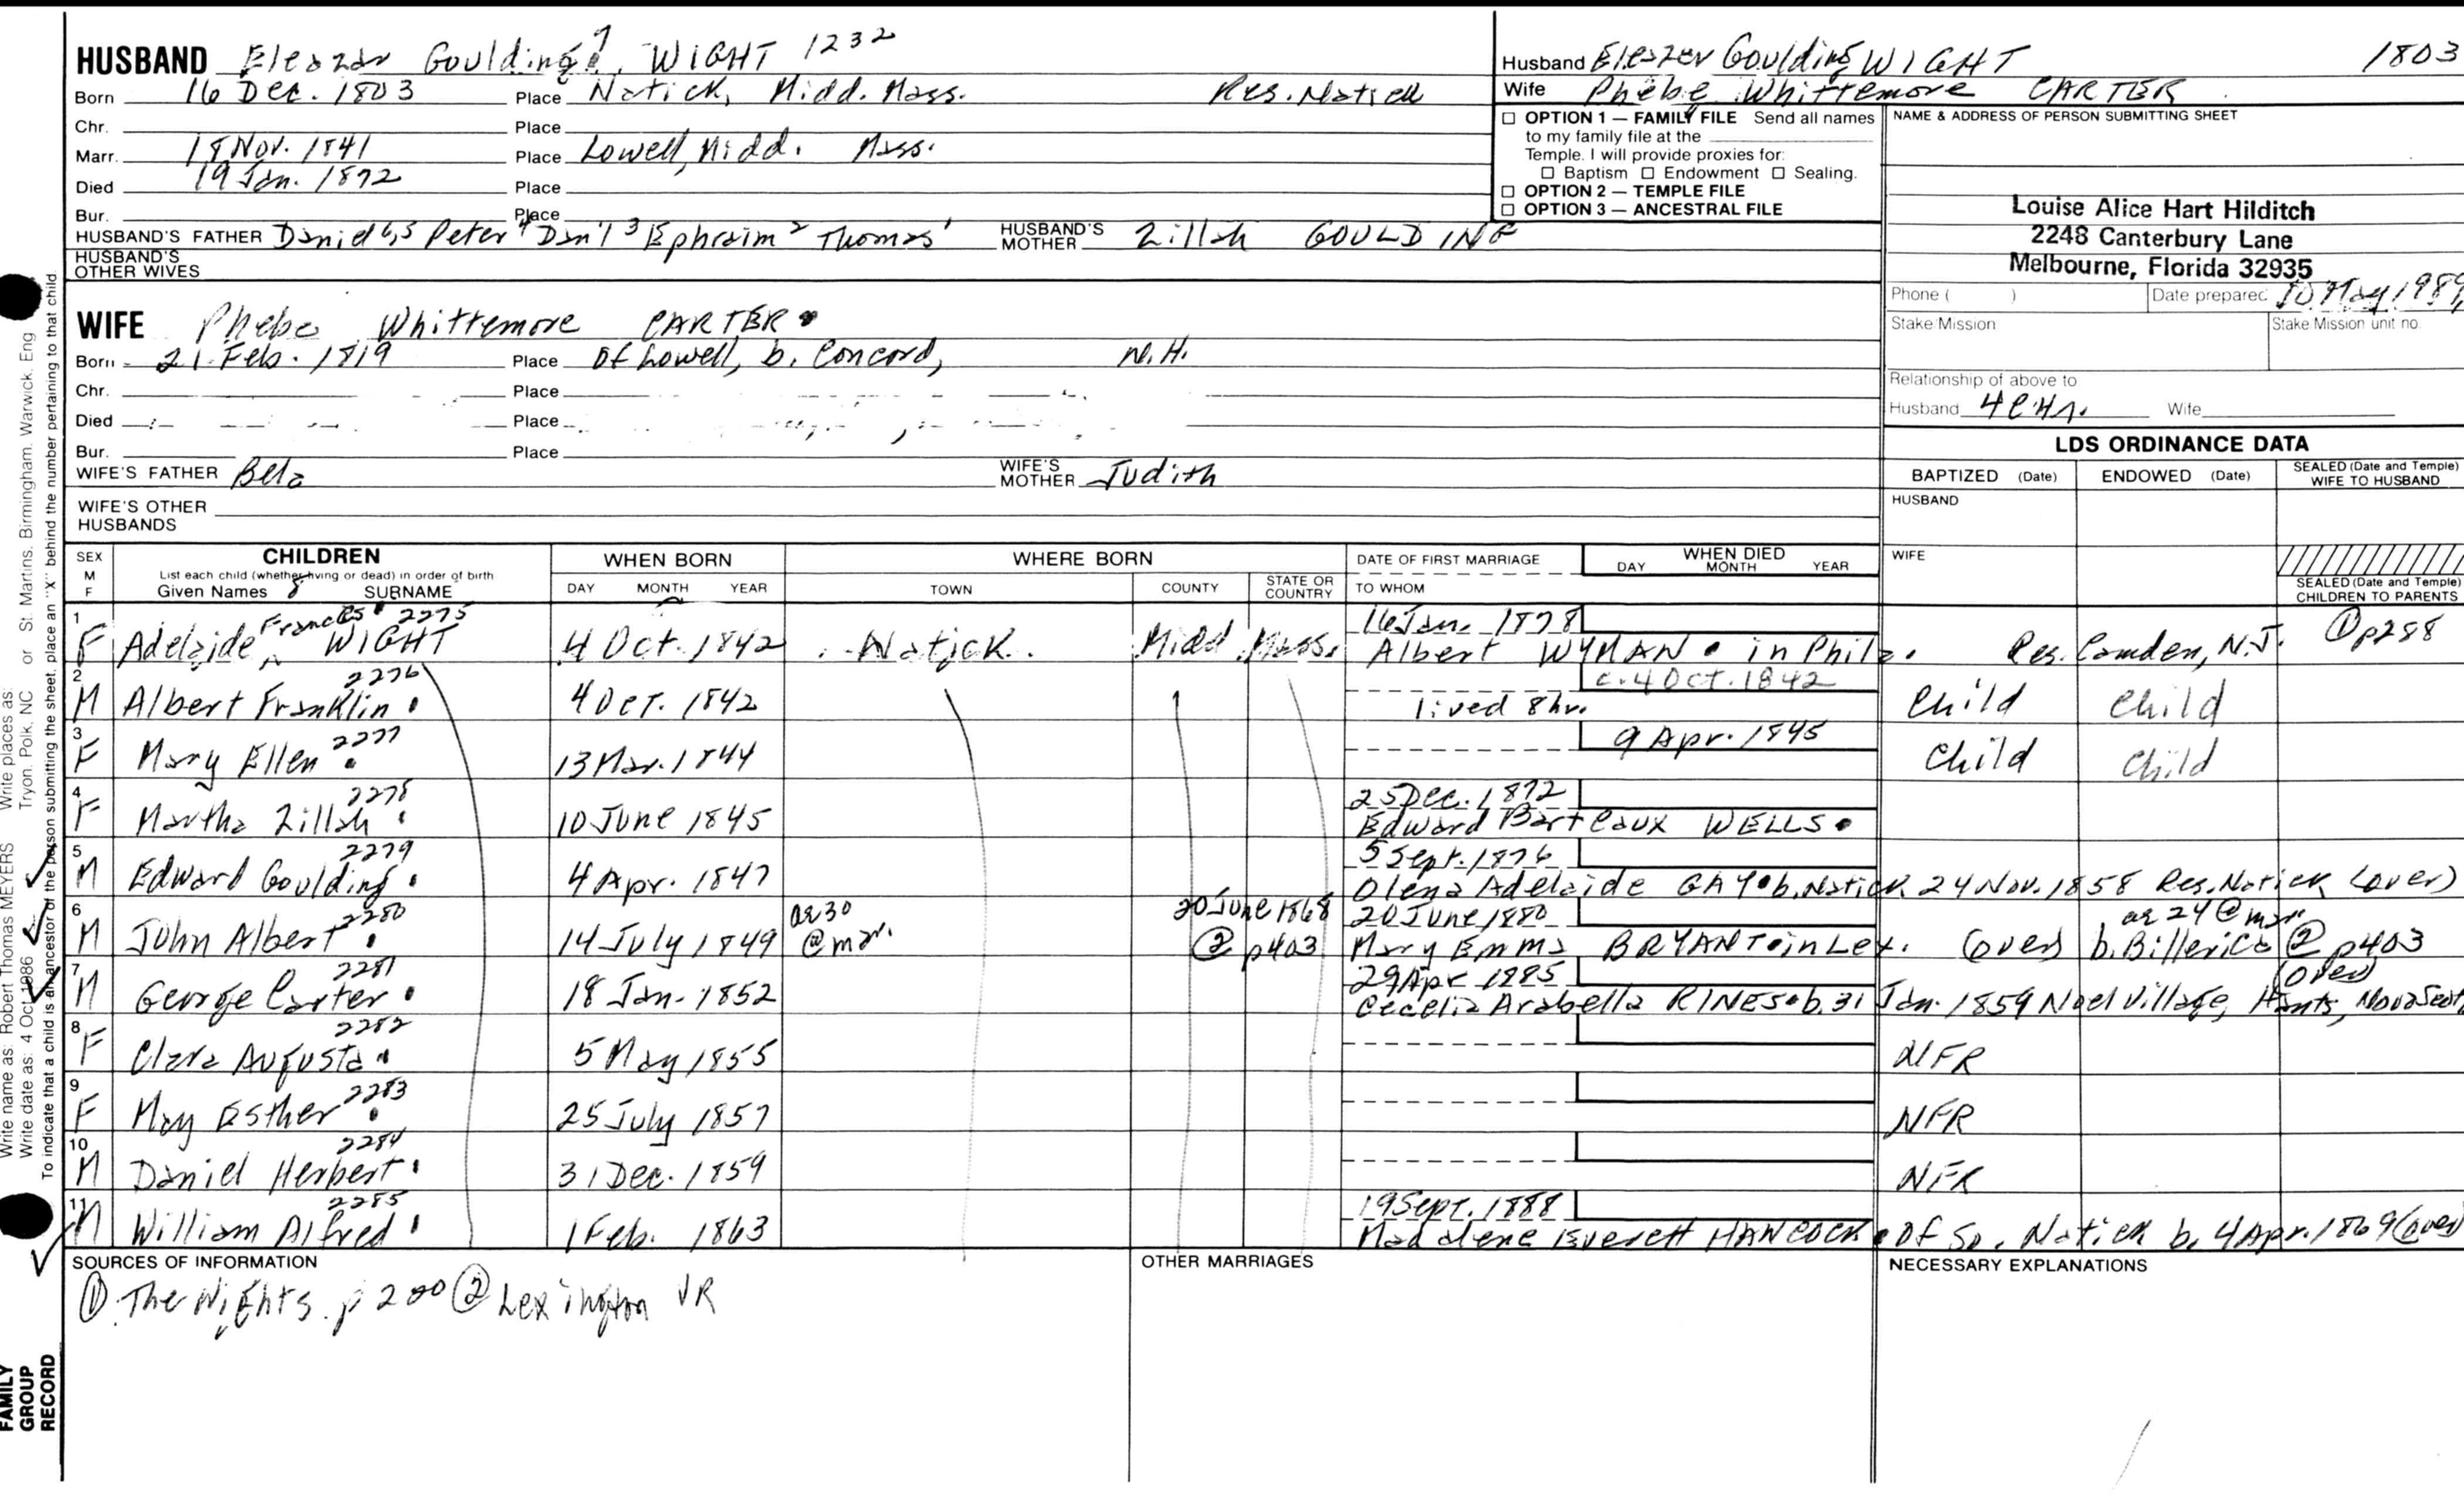 HUSBAND Eleazar Goulding 7, WIGHT 1232
Born 16 Dec. 1803 Place Natick, Midd. Mass. Res. Natick
Chr. Place
Marr. 18 Nov. 1841 Place Lowell, Midd. Mass.
Died 19 Jan. 1872 Place
Bur. Place
HUSBAND'S FATHER Daniel 6,5 Peter 4 Dan'l 3 Ephraim 2 Thomas 1 HUSBAND'S MOTHER Zillah GOULDING
HUSBAND'S OTHER WIVES
WIFE Phebe Whittemore CARTER
Born 21 Feb. 1819 Place Of Lowell, b. Concord, N.H.
Chr. Place
Died Place
Bur. Place
WIFE'S FATHER Bela WIFE'S MOTHER Judith
WIFE'S OTHER HUSBANDS
Husband Eleazer Goulding WIGHT 1803
Wife Phebe Whittemore CARTER
☐ OPTION 1 — FAMILY FILE Send all names
to my family file at the
Temple. I will provide proxies for:
☐ Baptism ☐ Endowment ☐ Sealing.
☐ OPTION 2 — TEMPLE FILE
☐ OPTION 3 — ANCESTRAL FILE
NAME & ADDRESS OF PERSON SUBMITTING SHEET
Louise Alice Hart Hilditch
2248 Canterbury Lane
Melbourne, Florida 32935
Phone ( ) Date prepared 10 May 1989
Stake/Mission Stake Mission unit no.
Relationship of above to
Husband 4C Wife
LDS ORDINANCE DATA
BAPTIZED (Date) ENDOWED (Date) SEALED (Date and Temple) WIFE TO HUSBAND
HUSBAND
WIFE
SEALED (Date and Temple) CHILDREN TO PARENTS
SEX M F CHILDREN
List each child (whether living or dead) in order of birth
Given Names SURNAME
WHEN BORN
DAY MONTH YEAR
WHERE BORN
TOWN COUNTY STATE OR COUNTRY
DATE OF FIRST MARRIAGE
TO WHOM
WHEN DIED
DAY MONTH YEAR
1 F Adelaide Frances WIGHT 2275 4 Oct. 1842 Natick Midd Mass. 16 Jan. 1878
Albert WYMAN in Phila. Res. Camden, N.J. ① p288
2 M Albert Franklin 2276 4 Oct. 1842 c. 4 Oct. 1842
lived 8 hr. Child Child
3 F Mary Ellen 2277 13 Mar. 1844 9 Apr. 1845 Child Child
4 F Martha Zillah 2278 10 June 1845 25 Dec. 1872
Edward Barteaux WELLS
5 M Edward Goulding 2279 4 Apr. 1847 5 Sept. 1876
Olena Adelaide GAY b. Natick 24 Nov. 1858 Res. Natick (over)
6 M John Albert 2280 14 July 1849 ae 30 @ mar. 20 June 1868 ② p403 20 June 1880
Mary Emma BRYANT in Lex. (over) ae 24 @ mar. b. Billerica ② p403
7 M George Carter 2281 18 Jan. 1852 29 Apr 1885
Cecelia Arabella RINES b. 31 Jan. 1859 Noel Village, Hants, Nova Scot (over)
8 F Clara Augusta 2282 5 May 1855 NFR
9 F May Esther 2283 25 July 1857 NFR
10 M Daniel Herbert 2284 31 Dec. 1859 NFR
11 M William Alfred 2285 1 Feb. 1863 19 Sept. 1888
Madalene Everett HANCOCK of So. Natick b. 4 Apr. 1869 (over)
SOURCES OF INFORMATION
① The Wights p 200 ② Lexington VR
OTHER MARRIAGES
NECESSARY EXPLANATIONS
Write name as: Robert Thomas MEYERS Write places as: Tryon, Polk, NC or St. Martins, Birmingham, Warwick, Eng
Write date as: 4 Oct 1986
To indicate that a child is an ancestor of the person submitting the sheet, place an "X" behind the number pertaining to that child.
FAMILY
GROUP
RECORD